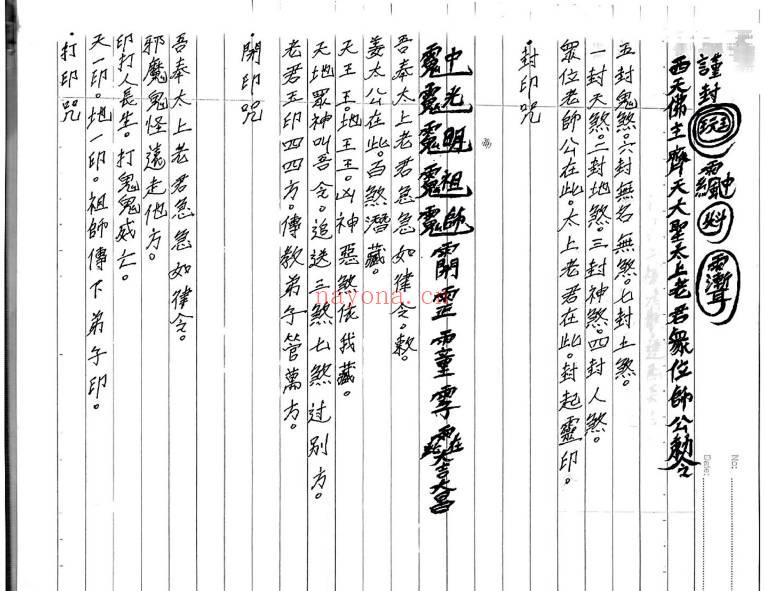 謹封
西天佛主齊天大聖太上老君眾位師公勅令
五封鬼煞。六封無名無煞。七封土煞。
一封天煞。二封地煞。三封神煞。四封人煞。
眾位老師公在此。太上老君在此。封起靈印。
·封印咒
中光明祖師
在此大吉大昌
吾奉太上老君急急如律令。敕。
姜太公在此。百煞潛藏。
天王王。地王王。凶神惡煞依我藏。
天地眾神叫吾令。追送三煞七煞过别方。
老君玉印四四方。傳教弟子管萬方。
·開印咒
吾奉太上老君急急如律令。
邪魔鬼怪遠走他方。
印打人長生。打鬼鬼威亡。
天一印。地一印。祖師傳下弟子印。
·打印咒
No:
Date:
nayona.cn